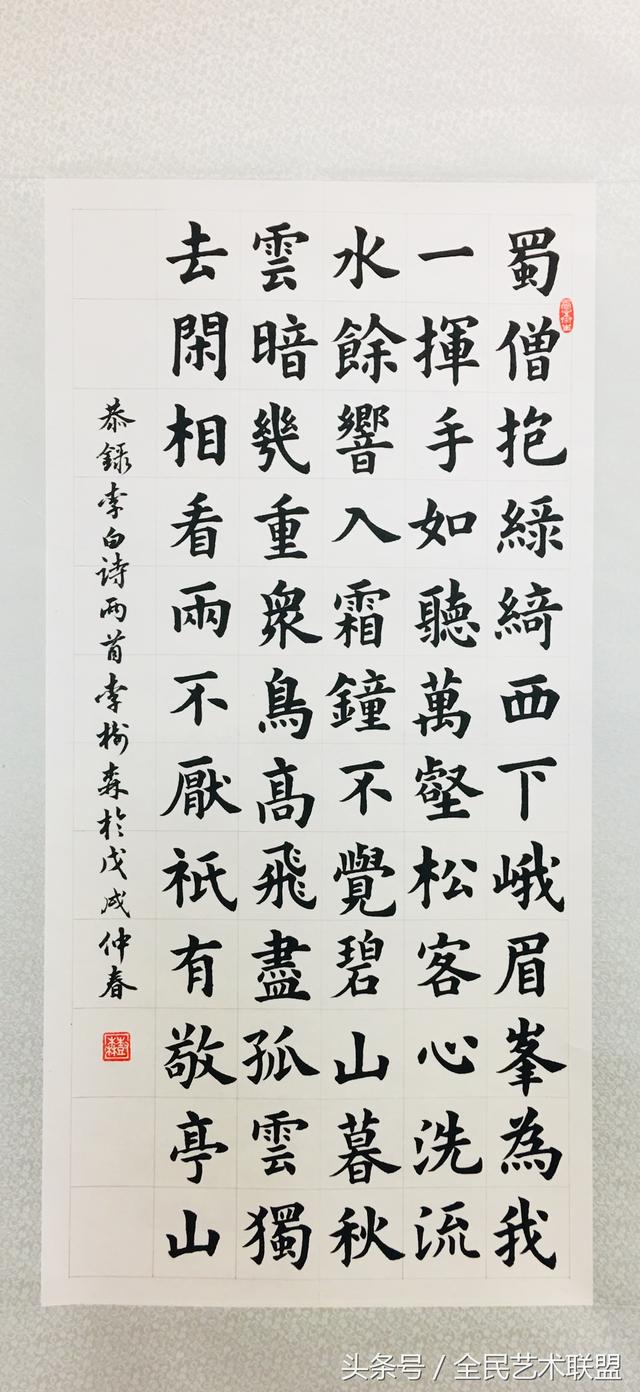 蜀僧抱綠綺西下峨眉峯為我
一揮手如聽萬壑松客心洗流
水餘響入霜鐘不覺碧山暮秋
雲暗幾重眾鳥高飛盡孤雲獨
去閑相看兩不厭祇有敬亭山
恭錄李白诗两首李樹森於戊戌仲春
头条号/全民艺术联盟